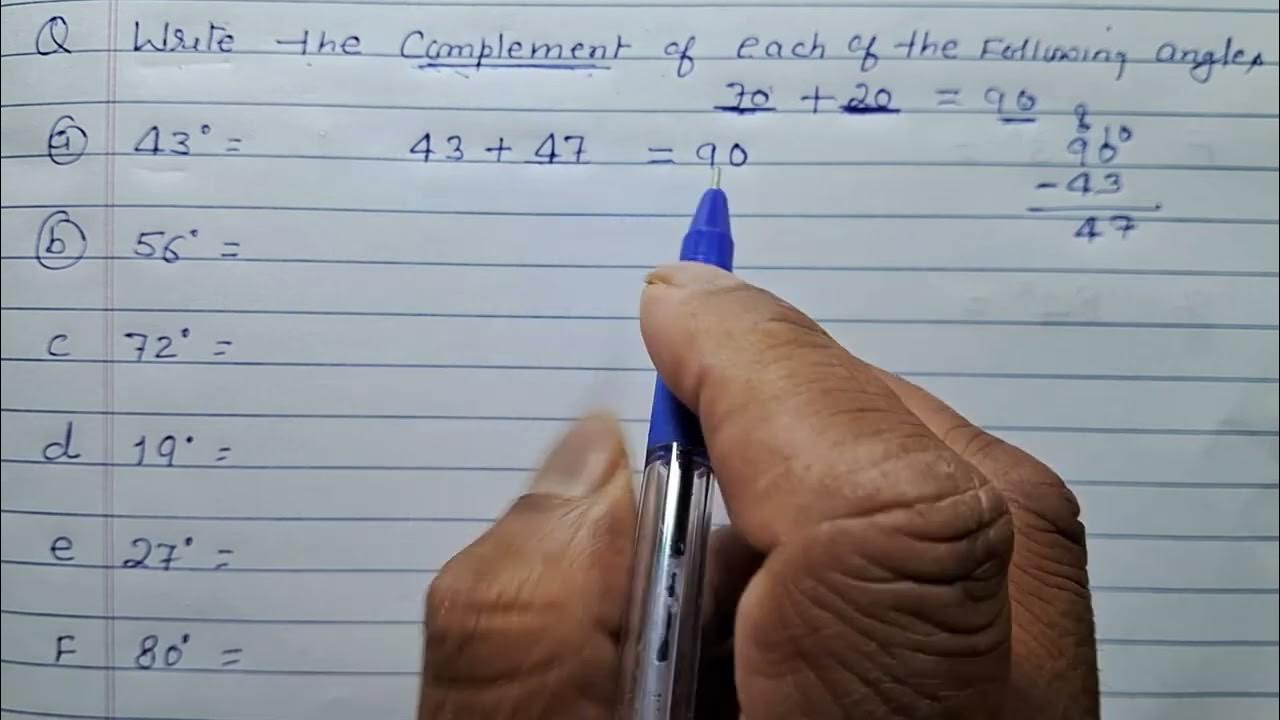 Q Write the Complement of each of the Following angles
70 + 20 = 90
a 43° = 43 + 47 = 90
8 10
90
- 43
47
b 56° =
c 72° =
d 19° =
e 27° =
F 80° =